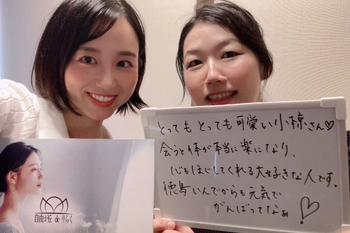 とっても とっても可愛い小椋さん♡
会うと体が本当に楽になり、
心もほぐしてくれる大好きな人です。
徳島いんでからも元気で
がんばってなぁ!♡